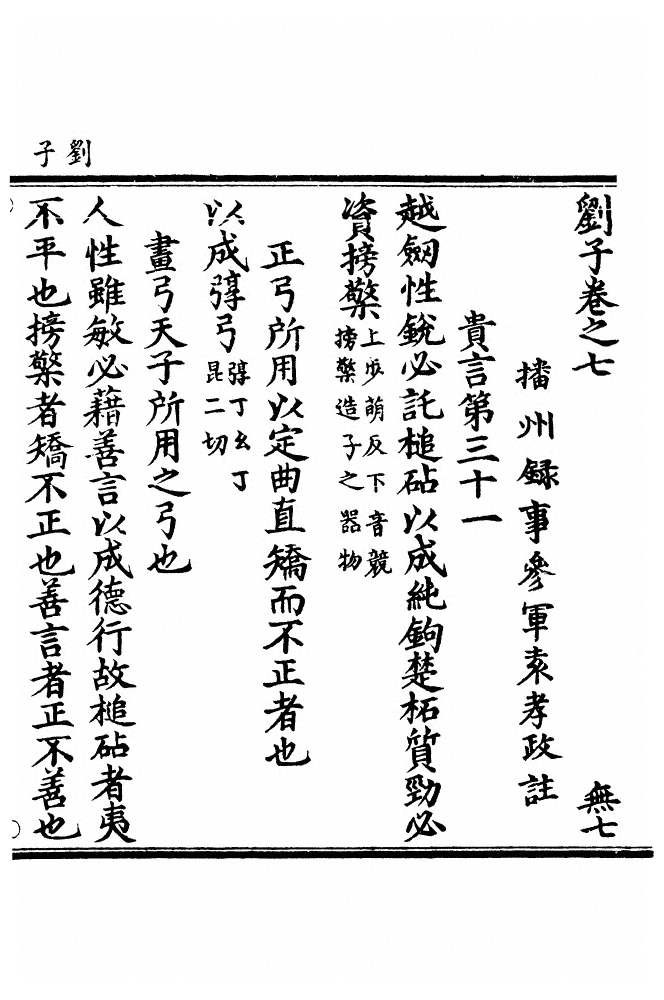 劉子
劉子卷之七 無七
播州録事參軍袁孝政註
貴言第三十一
越劒性銳必託槌砧以成純鉤楚柘質勁必
資搒檠上步萌反下音競搒檠造子之器物
正弓所用以定曲直矯而不正者也
以成弴弓弴丁幺丁昆二切
畫弓天子所用之弓也
人性雖敏必藉善言以成德行故槌砧者夷
不平也搒檠者矯不正也善言者正不善也